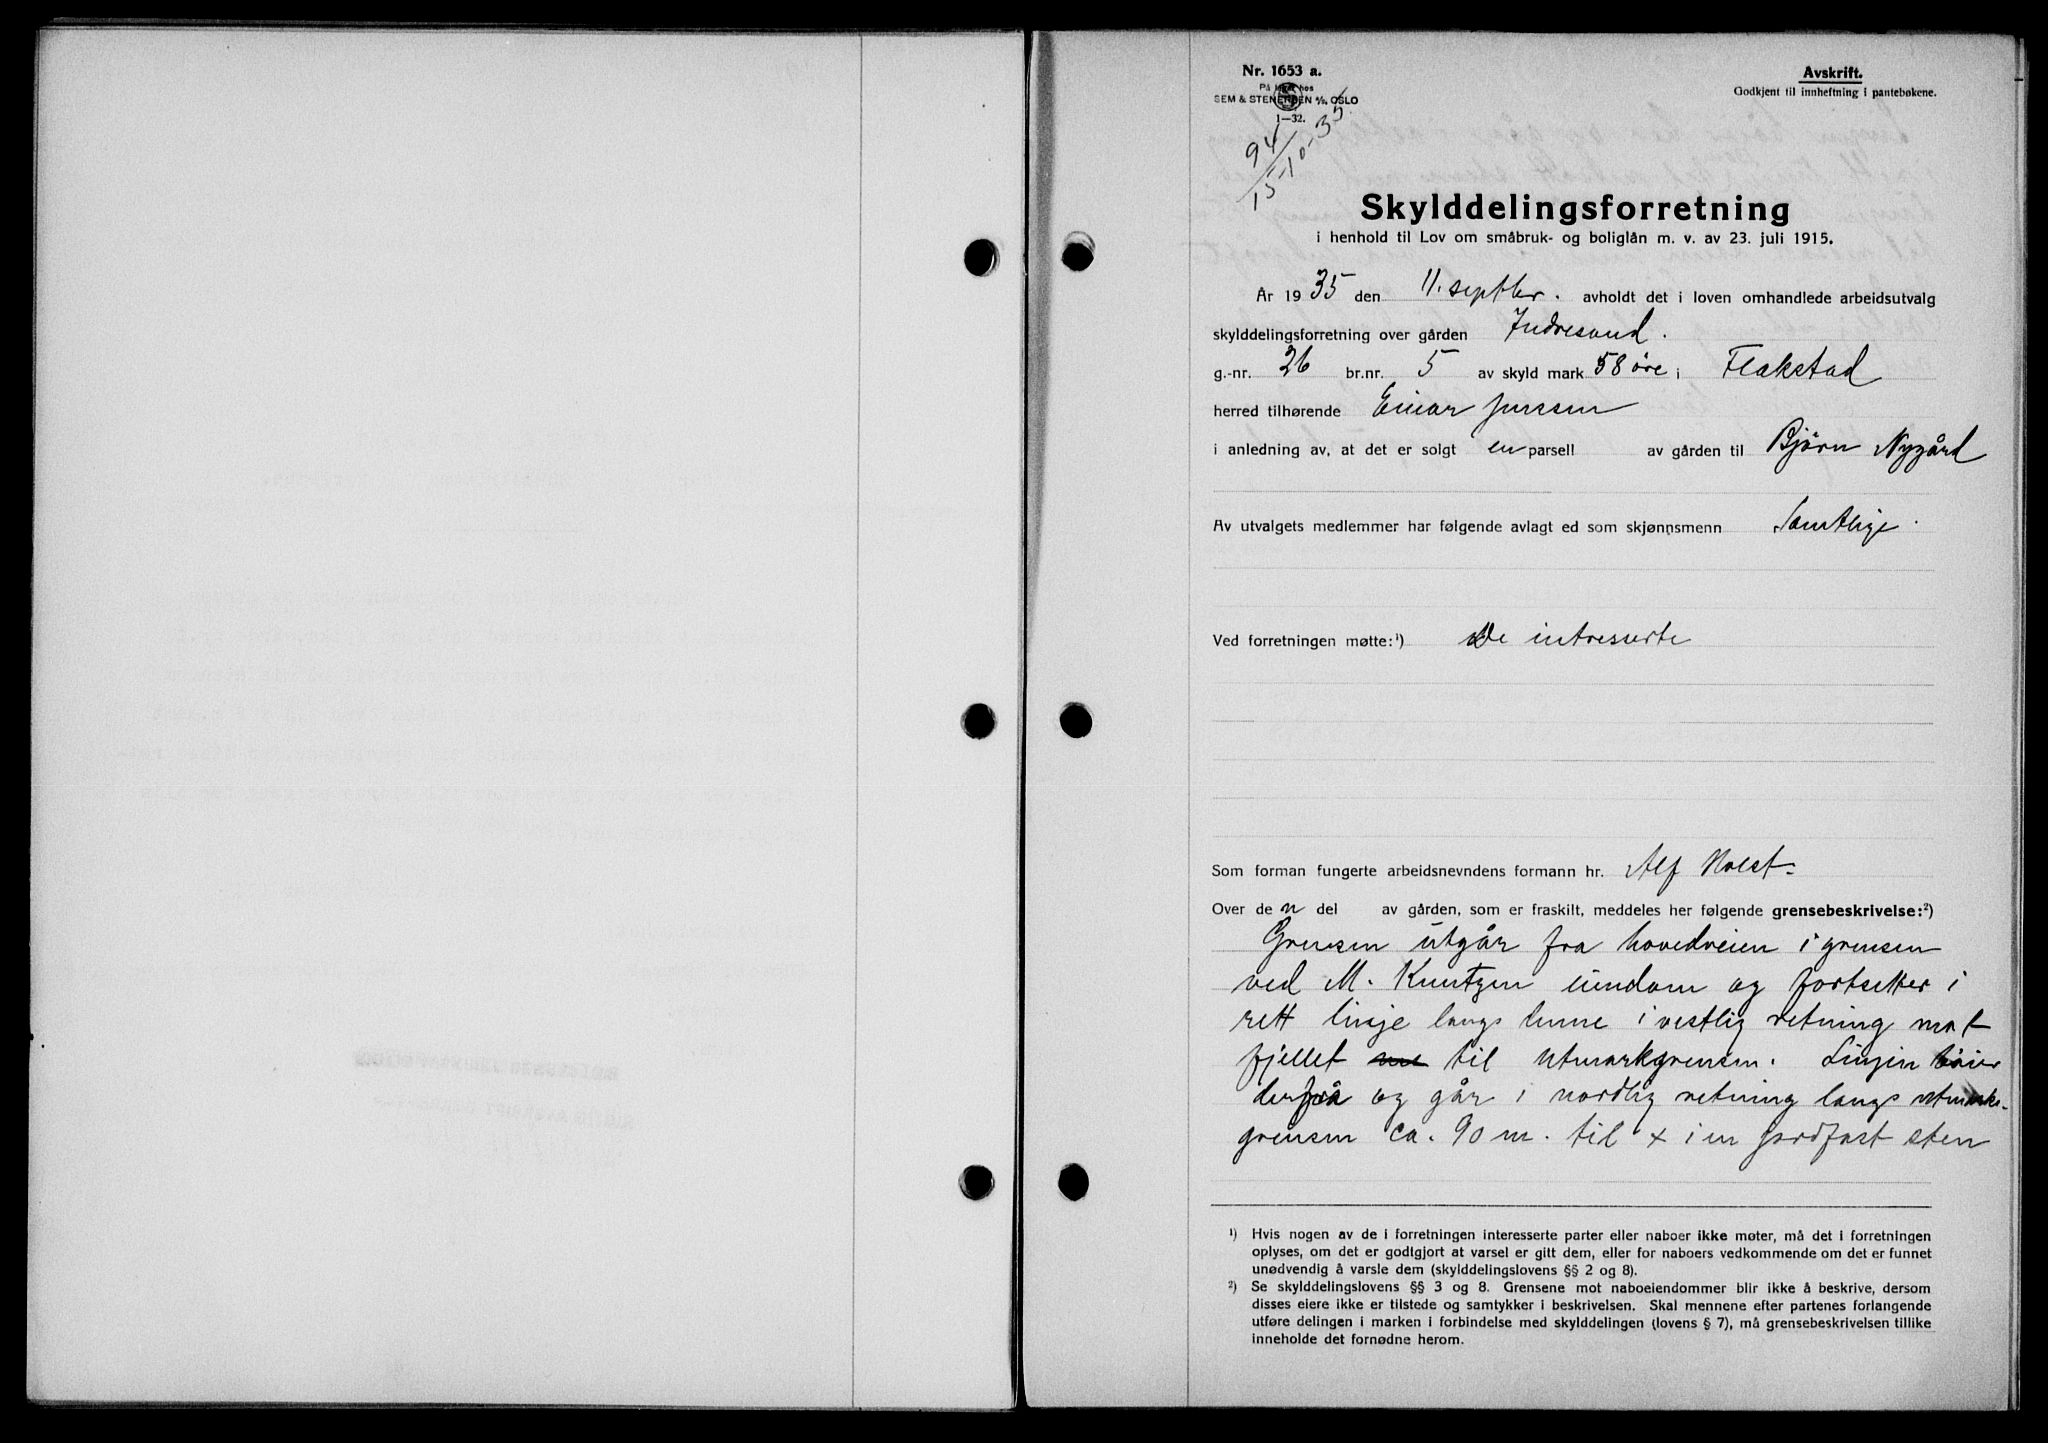 Nr. 1653 a.
På lager hos
SEM & STENERSEN A/S, OSLO
1—32.
Avskrift.
Godkjent til innheftning i pantebøkene.
94/15-10-35
Skylddelingsforretning
i henhold til Lov om småbruk- og boliglån m. v. av 23. juli 1915.
År 1935 den 11. septbr. avholdt det i loven omhandlede arbeidsutvalg
skylddelingsforretning over gården Indresand.
g.-nr. 26 br.nr. 5 av skyld mark 58 øre i Flakstad
herred tilhørende Einar Jenssen
i anledning av, at det er solgt en parsell av gården til Bjørn Nygård
Av utvalgets medlemmer har følgende avlagt ed som skjønnsmenn Samtlige.
Ved forretningen møtte:¹) De intresserte
Som forman fungerte arbeidsnevndens formann hr. Alf Holst.
Over den del av gården, som er fraskilt, meddeles her følgende grensebeskrivelse:²)
Grensen utgår fra hovedveien i grensen
ved M. Knutzen eiendom og fortsetter i
rett linje langs denne i vestlig retning mot
fjellet til utmarkgrensen. Linjen bøier
derfra og går i nordlig retning langs utmarks-
grensen ca. 90 m. til x i en jordfast sten
¹) Hvis nogen av de i forretningen interesserte parter eller naboer ikke møter, må det i forretningen
oplyses, om det er godtgjort at varsel er gitt dem, eller for naboers vedkommende om det er funnet
unødvendig å varsle dem (skylddelingslovens §§ 2 og 8).
²) Se skylddelingslovens §§ 3 og 8. Grensene mot naboeiendommer blir ikke å beskrive, dersom
disses eiere ikke er tilstede og samtykker i beskrivelsen. Skal mennene efter partenes forlangende
utføre delingen i marken i forbindelse med skylddelingen (lovens § 7), må grensebeskrivelsen tillike
inneholde det fornødne herom.